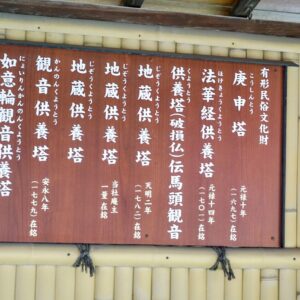 有形民俗文化財
こうしんとう
庚申塔
元禄十年
(一六九七)在銘
ほけきょうくようとう
法華経供養塔
元禄十四年
(一七〇一)在銘
くようとう
供養塔(破損仏)伝馬頭観音
じぞうくようとう
地蔵供養塔
天明二年
(一七八二)在銘
じぞうくようとう
地蔵供養塔
当社庵主
一量在銘
じぞうくようとう
地蔵供養塔
かんのんくようとう
観音供養塔
安永八年
(一七七九)在銘
にょいりんかんのんくようとう
如意輪観音供養塔